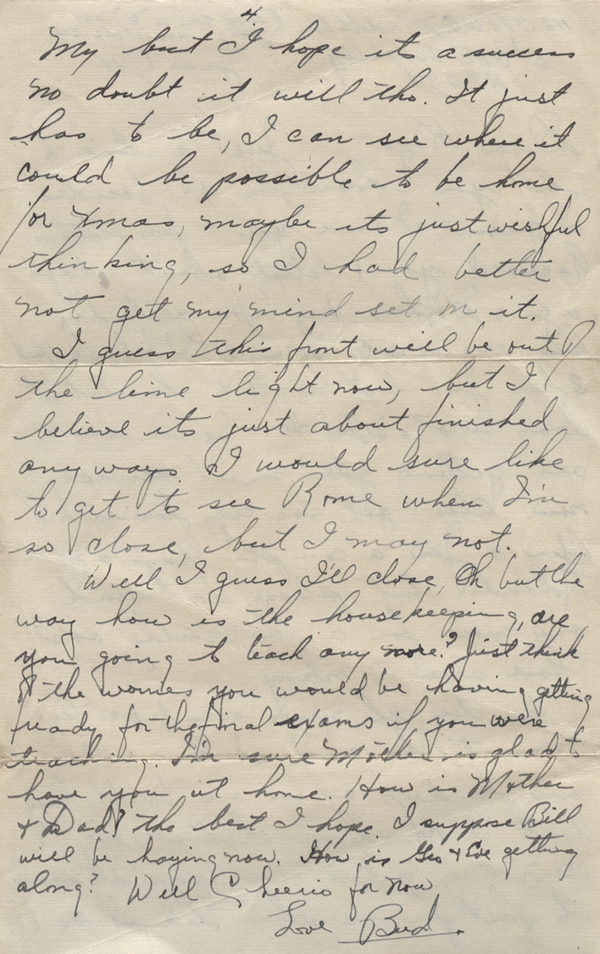 4
My best I hope its a success
no doubt it will tho. It just
has to be, I can see where it
could be possible to be home
for Xmas, maybe its just wishful
thinking, so I had better
not get my mind set on it.
I guess this front will be out of
the lime light now, but I
believe its just about finished
any ways I would sure like
to get to see Rome when I'm
so close, but I may not.
Well I guess I'll close, Oh but the
way how is the housekeeping, are
you going to teach any more? Just think
of the worries you would be having getting
ready for the final exams if you were
teaching. I'm sure Mother is glad to
have you at home. How is Mother
& Dad? the best I hope. I suppose Bill
will be haying now. How is Geo & Eve getting
along? Well Cheerio for now
Love Bud.